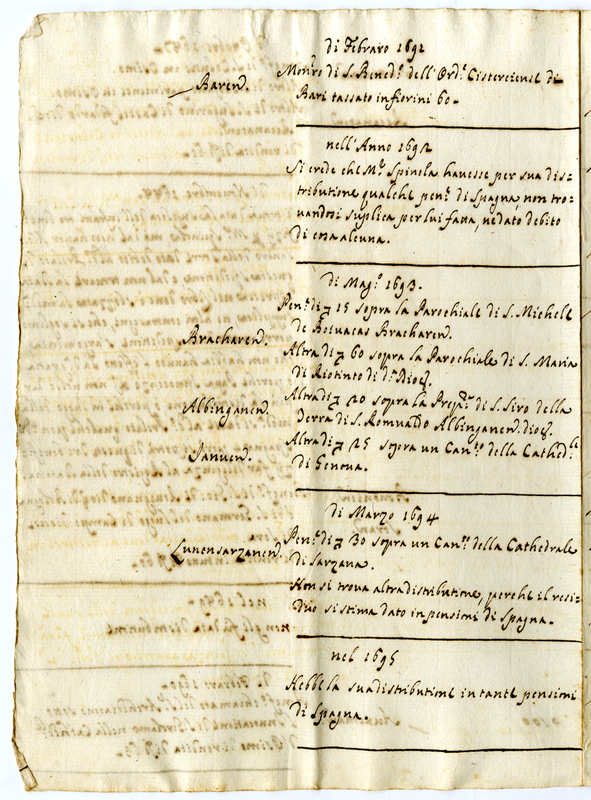 di Febraro 1692
Baren̄.
Monr̄o di S. Bened.º dell'Ord.e Cisterciense di
Bari tassato in fiorini 60 -
nell'Anno 1692
Si crede che M.r Spinola havesse per sua dis=
tributione qualche pen.e di Spagna, non tro=
uandosi suplica per lui fatta, ne dato debito
di cosa alcuna.
di Mag.º 1693.
Pen.e di 15 sopra la Parochiale di S. Michele
Bracharen̄.
de Bracharen̄.
Altra di 60 sopra la Parochiale di S. Maria
di Riotinto di d.a Dioc.
Albinganen̄.
Altra di 20 sopra la di S. Siro della
Terra di S. Romualdo Albinganen̄. dioc.
Ianuen̄.
Altra di 25 sopra un Can.to della Cathed.le
di Genova.
di Marzo 1694
Lunensarzanen̄.
Pen.e di 30 sopra un Can.to della Cathedrale
di Sarzana.
Non si trova altra distributione, perche il resi=
duo si stima dato in pensioni di Spagna.
nel 1695
Hebbe la sua distributione in tante pensioni
di Spagna.